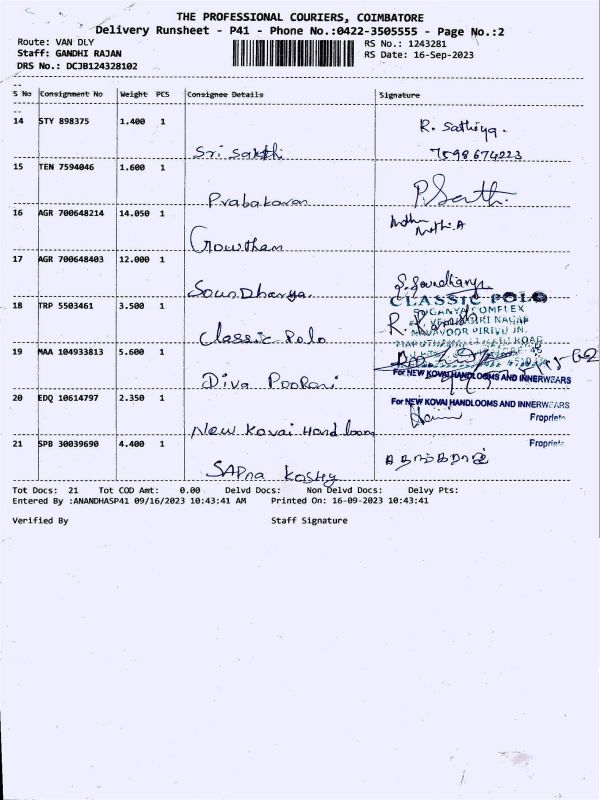 THE PROFESSIONAL COURIERS, COIMBATORE
Delivery Runsheet - P41 - Phone No.:0422-3505555 - Page No.:2
Route: VAN DLY
RS No.: 1243281
Staff: GANDHI RAJAN
RS Date: 16-Sep-2023
DRS No.: DCJB124328102
S No Consignment No Weight PCS Consignee Details Signature
14 STY 898375 1.400 1 R. Sathiya.
Sri Sakthi 7598674223
15 TEN 7594046 1.600 1
Prabakaran
16 AGR 700648214 14.050 1
Gowtham
17 AGR 700648403 12.000 1
SounDharya.
CLASSIC POLO
18 TRP 5503461 3.500 1
Classic Polo
19 MAA 104933813 5.600 1
Diva Poorani
For NEW KOVAI HANDLOOMS AND INNERWEARS
20 EDQ 10614797 2.350 1
For NEW KOVAI HANDLOOMS AND INNERWEARS
New Kovai Handloom
21 SPB 30039690 4.400 1
SAPna Koshy
Tot Docs: 21 Tot COD Amt: 0.00 Delvd Docs: Non Delvd Docs: Delvy Pts:
Entered By :ANANDHASP41 09/16/2023 10:43:41 AM Printed On: 16-09-2023 10:43:41
Verified By Staff Signature